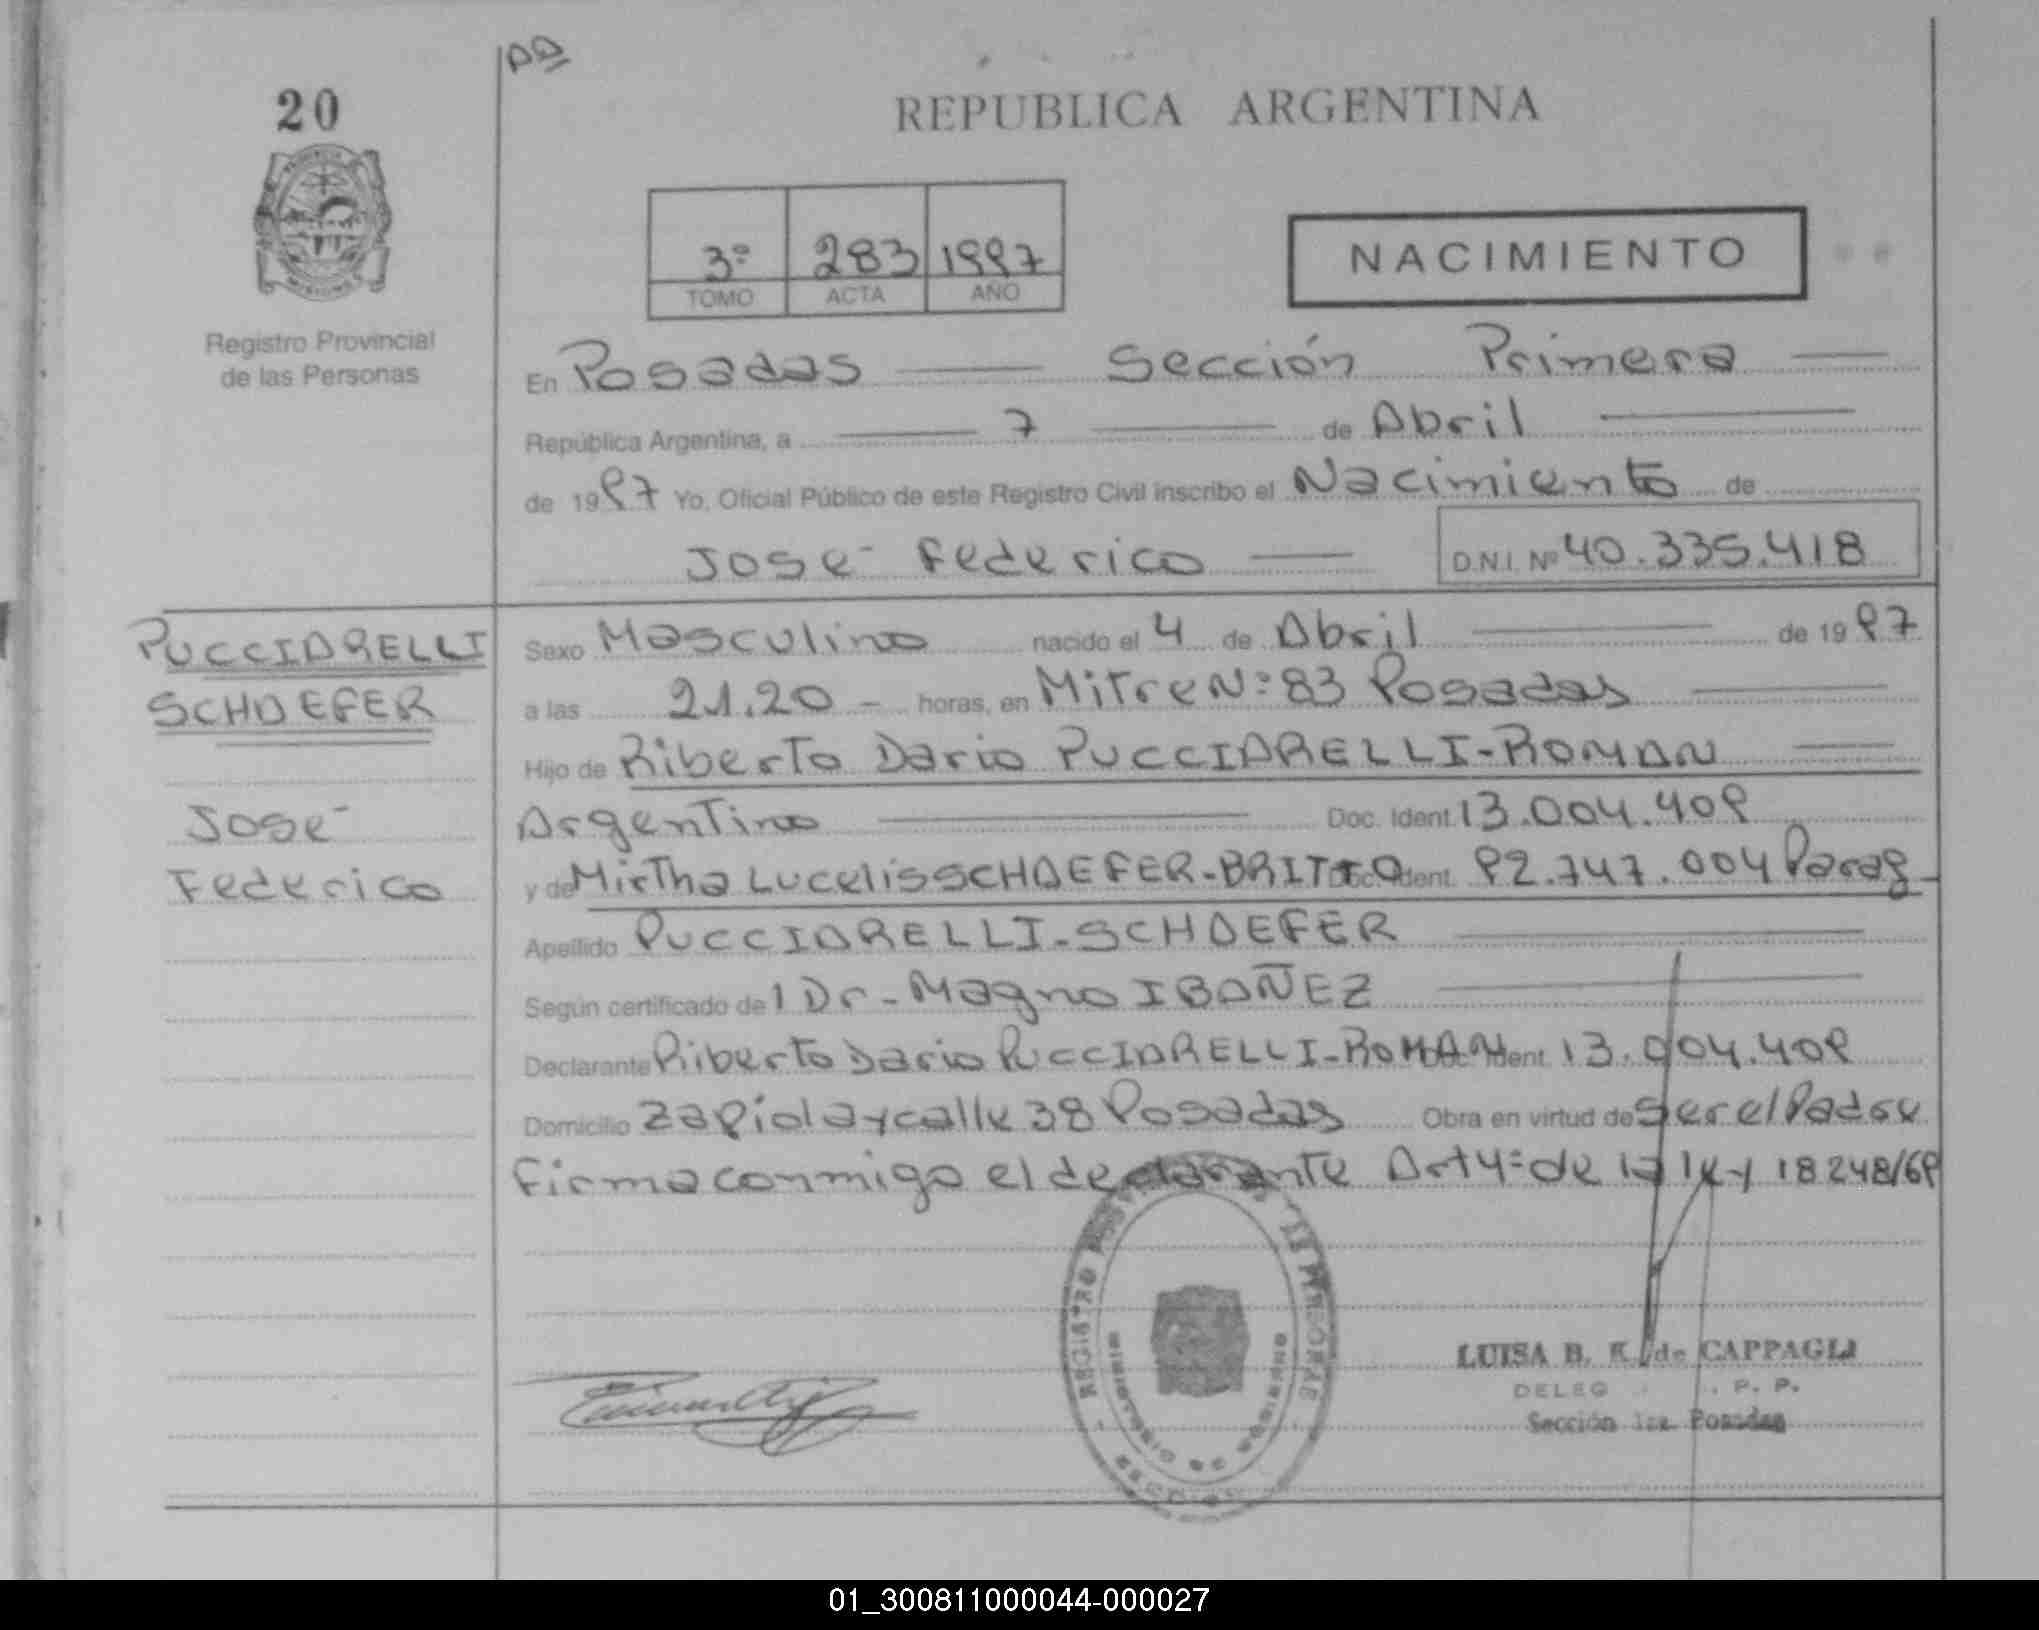 20
REPUBLICA ARGENTINA
3º 283 1997
TOMO ACTA AÑO
NACIMIENTO
Registro Provincial
de las Personas
En Posadas Sección Primera
República Argentina, a 7 de Abril
de 1997 Yo, Oficial Público de este Registro Civil inscribo el Nacimiento de
José Federico D.N.I. Nº 40.335.418
PUCCIARELLI
SCHAEFER
José
Federico
Sexo Masculino nacido el 4 de Abril de 1997
a las 21.20 - horas, en Mitre Nº 83 Posadas
Hijo de Riberto Dario PUCCIARELLI-ROMAN
Argentino Doc. Ident. 13.004.409
y de Mirtha Lucelis SCHAEFER-BRITTO Doc. Ident. 92.747.004 Parag
Apellido PUCCIARELLI-SCHAEFER
Según certificado de l Dr- Magno IBAÑEZ
Declarante Riberto Dario PUCCIARELLI-ROMAN Doc. Ident. 13.004.409
Domicilio Zapiola y calle 38 Posadas Obra en virtud de Ser el Padre
Firma conmigo el declarante Art 4º de la ley 18248/69
LUISA B. K. de CAPPAGLI
DELEG P. P.
Sección 1ra Posadas
01_300811000044-000027